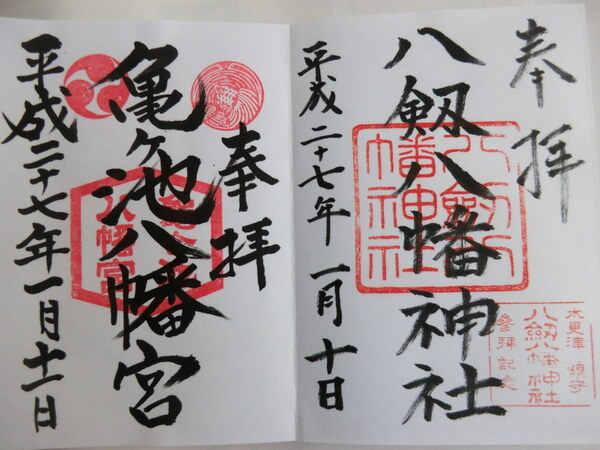 奉拝
八剱八幡神社
八剱八幡神社
木更津 鎮守
八剱八幡神社
参拝記念
平成二十七年一月十日
奉拝
亀ヶ池八幡宮
平成二十七年一月十一日